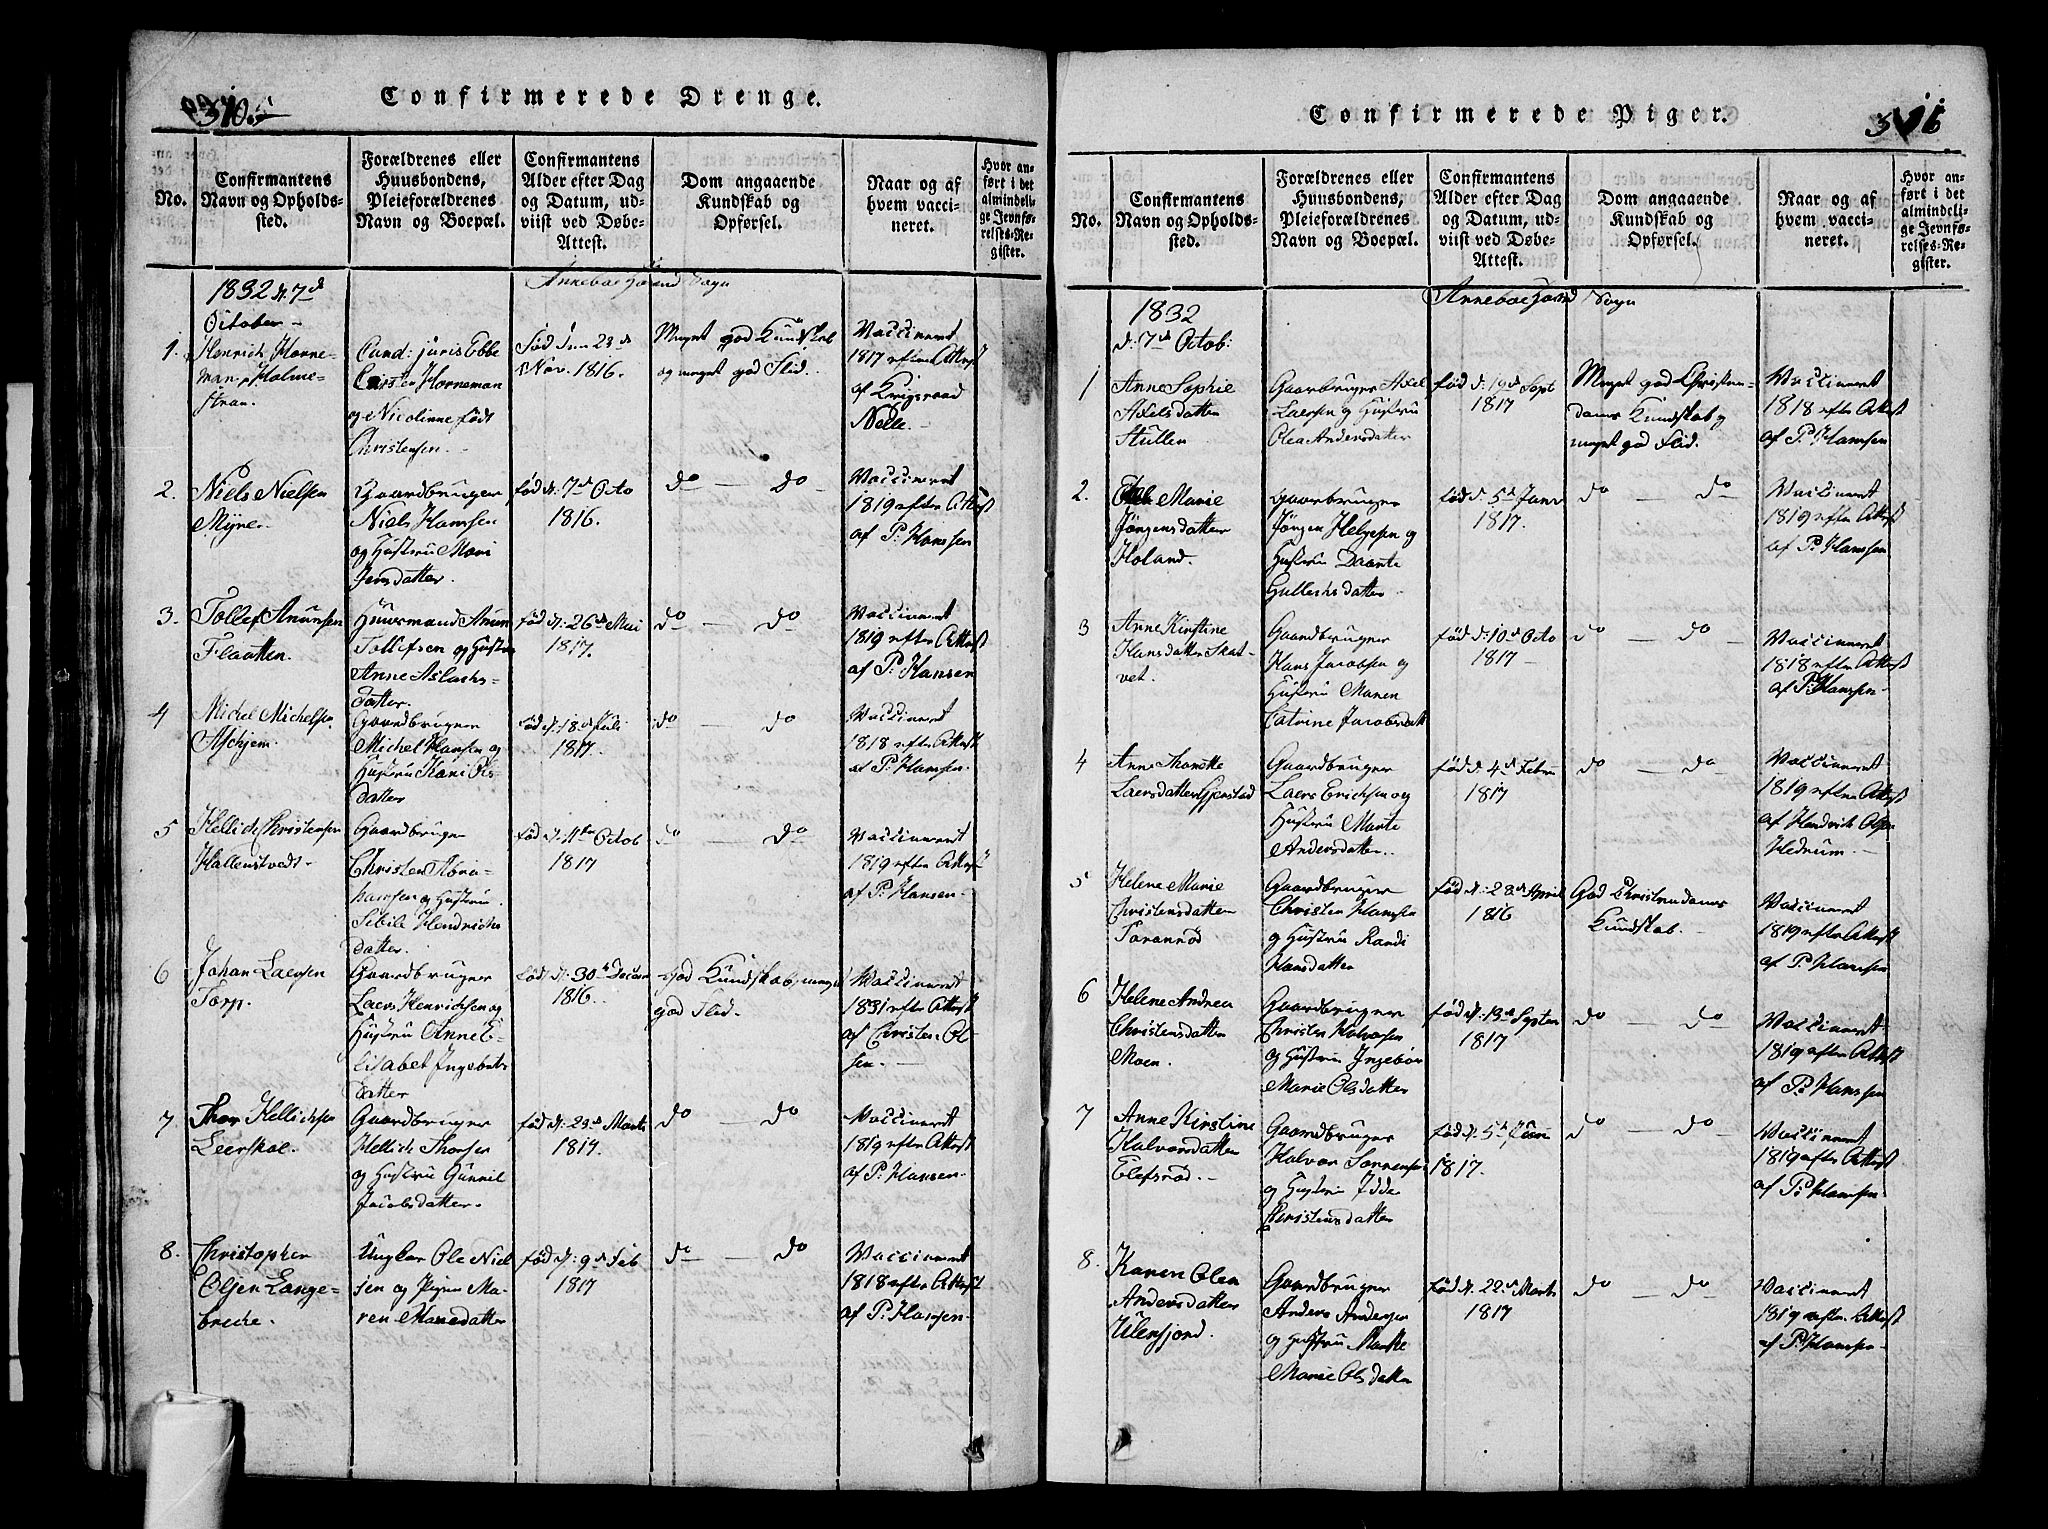 Confirmerede Drenge.
No.
Confirmantens
Navn og Opholds-
sted.
Forældrenes eller
Huusbondens,
Pleieforældrenes
Navn og Boepæl.
Confirmantens
Alder efter Dag
og Datum, ud-
viist ved Døbe-
Attest.
Dom angaaende
Kundskab og
Opførsel.
Naar og af
hvem vacci-
neret.
Hvor an-
ført i det
almindeli-
ge Jevnfø-
relses-Re-
gister.
1832 d. 7d
October
1.
Henrich Horne-
man Holme-
stran.
Cand: juris Ebbe
Carsten Horneman
og Nicolinne født
Christensen.
Født den 23d
Nov. 1816.
Meget god Kundskab
og meget god Flid.
Vaccineret
1817 efter Attest
af Krigsraad
2.
Niels Nielsen
Myre.
Gaardbruger
Niels Hansen
og Hustru Mari
Jensdatter.
født d. 7d Octo
1816.
do — do
Vaccineret
1819 efter Attest
af P. Hansen
3.
Tollef Anunsen
Flaatten.
Huusmand Anun
Tollefsen og Hustru
Anne Aslachs-
datter.
født d. 26d Mai
1817.
do — do
Vaccineret
1819 efter Attest
af P. Hansen
4
Michel Michelsen
Askjem.
Gaardbruger
Michel Hansen og
Hustru Kari Ols
datter
født d. 18d Juli
1817.
do — do
Vaccineret
1818 efter Attest
af P. Hansen.
5
Kellich Christensen
Hallenstvedt.
Gaardbruger
Christen Abra-
hamsen og Hustru
Sibile Hendrichs
datter.
født d. 11te Octob
1817
do do
Vaccineret
1819 efter Attest
af P. Hansen.
6
Johan Laersen
Torp.
Gaardbruger
Laers Henrichsen og
Hustru Anne E-
lisabet Ingebrets
datter
født d. 30d Decem
1816.
God Kundskab, meget
god Flid.
Vaccineret
1831 efter Attest
af Christen Ol-
sen.
7
Thor Kellichsen
Leerskal.
Gaardbruger
Kellich Thorsen
og Hustru Gunnil
Jacobsdatter.
født d. 23d Marts
1817.
do — do
Vaccineret
1819 efter Attest
af P. Hansen.
8.
Christopher
Olsen Lange-
breche.
Ungkar Ole Niel
sen og Pigen Ma-
ren
født d. 9d Feb
1817
do — do
Vaccineret
1818 efter Attest
af P. Hansen.
Confirmerede Piger.
No.
Confirmantens
Navn og Opholds-
sted.
Forældrenes eller
Huusbondens,
Pleieforældrenes
Navn og Boepæl.
Confirmantens
Alder efter Dag
og Datum, ud-
viist ved Døbe-
Attest.
Dom angaaende
Kundskab og
Opførsel.
Naar og af
hvem vacci-
neret.
Hvor an-
ført i det
almindeli-
ge Jevnfø-
relses-Re-
gister.
Sogn
1832
d. 7d Octob:
1
Anne Sophie
Axelsdatter
Stullen
Gaardbruger Axel
Laersen og Hustru
Olea Andersdatter
født d. 19d Sept
1817
Meget god Christen-
doms Kundskab og
meget god Flid.
Vaccineret
1818 efter Attest
af P. Hansen
2.
Marie
Jörgensdatter
Holand.
Gaardbruger
Jörgen Helgesen og
Hustru Daarte
Gullechsdatter.
født d. 5d Janr
1817.
do — do
Vaccineret
1819 efter Attest
af P. Hansen
3
Anne Kirstine
Hansdatter Skat-
vet.
Gaardbruger
Hans Jacobsen og
Hustru Maren
Catrine Jacobsdatt
født d. 10d Octo
1817
do — do
Vaccineret
1818 efter Attest
af P. Hansen.
4
Anne Marthe
Laersdatter Gjerstad
Gaardbruger
Laers Erichsen og
Hustru Marte
Andersdatter.
født d. 4d Febru
1817
do — do
Vaccineret
1819 efter Attest
af Hendrik Olsen
Hedrum.
5
Helene Marie
Christensdatter
Taranrød
Gaardbruger
Christen Hansen
og Hustru Randi
Hansdatter
født d. 28d April
1816
God Christendoms
Kundskab.
Vaccineret
1819 efter Attest
af P. Hansen
6
Helene Andrea
Christensdatter
Moen.
Gaardbruger
Christen Halvorsen
og Hustru Ingebor
Marie Olsdatter
født d. 13d Septem
1817
do — do
Vaccineret
1819 efter Attest
af P. Hansen
7
Anne Kirstine
Halvorsdatter
Elefsrød.
Gaardbruger
Halvor Sørrensen
og Hustru Idde
Christensdatter
født d. 5d
1817.
do — do
Vaccineret
1819 efter Attest
af P. Hansen.
8.
Karen Olea
Andersdatter
Ulensjord.
Gaardbruger
Anders Andersen
og Hustru Marthe
Marie Olsdatter
født d. 22d Marts
1817
do — do
Vaccineret
1819 efter Attest
af P. Hansen.